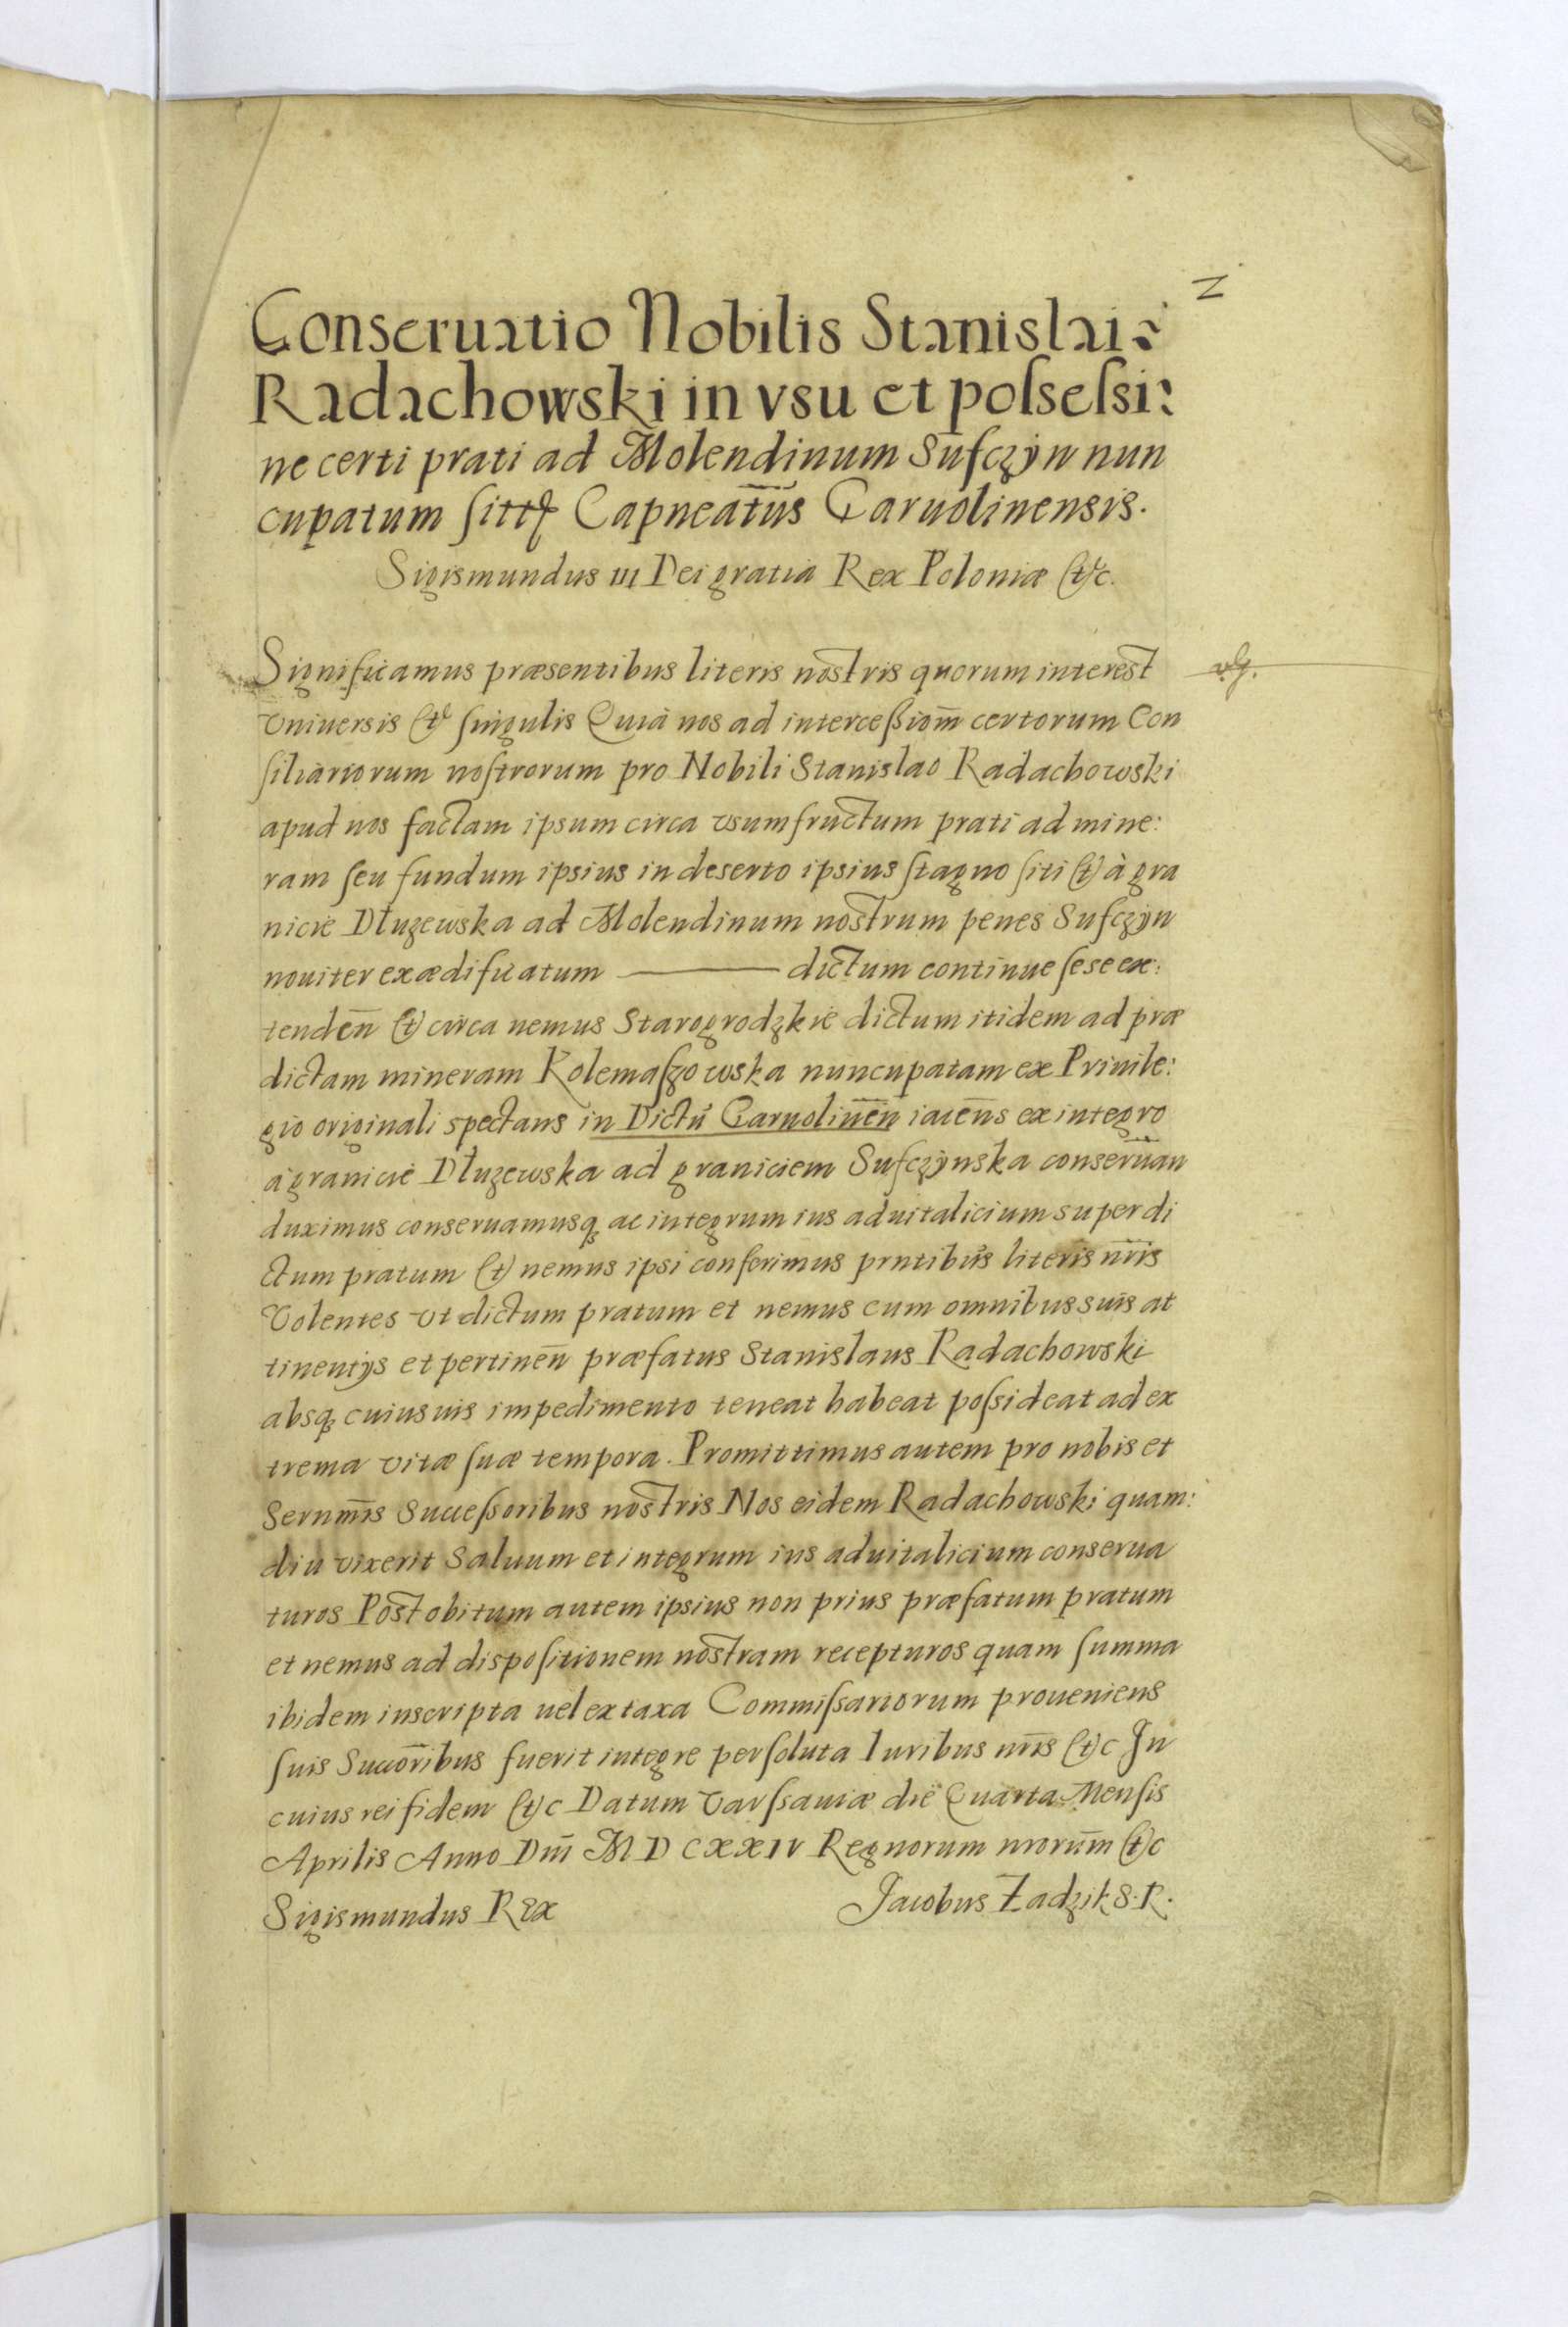 Z
Conseruatio Nobilis Stanislai:
Radachowski in vsu et poſseſsi:
ne certi prati ad Molendinum Sufczÿn nun
cupatum ſitt Capneatūs Garuolinensis.
Sigismundus III Dei gratia Rex Poloniæ &c.
Significamus præsentibus literis nostris quorum interest
vg.
Vniuersis & ſingulis Quià nos ad interceßiom̄ certorum Con
ſiliariorum noſtrorum pro Nobili Stanislao Radachowski
apud nos factam ipsum circa vsumfructum prati ad mine:
ram ſeu fundum ipsius in deserto ipsius ſtagno ſiti & à gra
nicie Dłuzewska ad Molendinum nostrum penes Sufczÿn
nouiter exædificatum ——— dictum continue ſese ex:
tendēn & circa nemus Starogrodzkie dictum itidem ad præ
dictam mineram Kolemaſzowska nuncupatam ex Priuile:
gio originali spectans in Dictū Garuolinēn iacēns ex integro
à granicie Dłuzewska ad graniciem Sufczÿnska conserūan
duximus conseruamusq ac integrum ius aduitalicium super di
ctum pratum & nemus ipsi conferimus prntibūs literis nr̄is
Volentes vt dictum pratum et nemus cum omnibus suis at
tinentÿs et pertinēn præfatus Stanislaus Radachowski
absq cuiusuis impedimento teneat habeat poſsideat ad ex
trema vitæ ſuæ tempora. Promittimus autem pro nobis et
Sernm̄is Succeſsoribus nostris Nos eidem Radachowski quam:
diu vixerit Saluum et integrum ius aduitalicium conserua
turos Post obitum autem ipsius non prius præfatum pratum
et nemus ad dispoſitionem nostram recepturos quam ſumma
ibidem inscripta uel ex taxa Commiſsariorum proueniens
ſuis Succōribus fuerit integre perſoluta Iuribus nr̄is &c In
cuius rei fidem &c Datum Varſsauiæ die Quarta Menſis
Aprilis Anno Dn̄i MDCXXIV Regnorum nrorum̄ &c
Sigismundus Rex Jacobus Zadzik S. R.